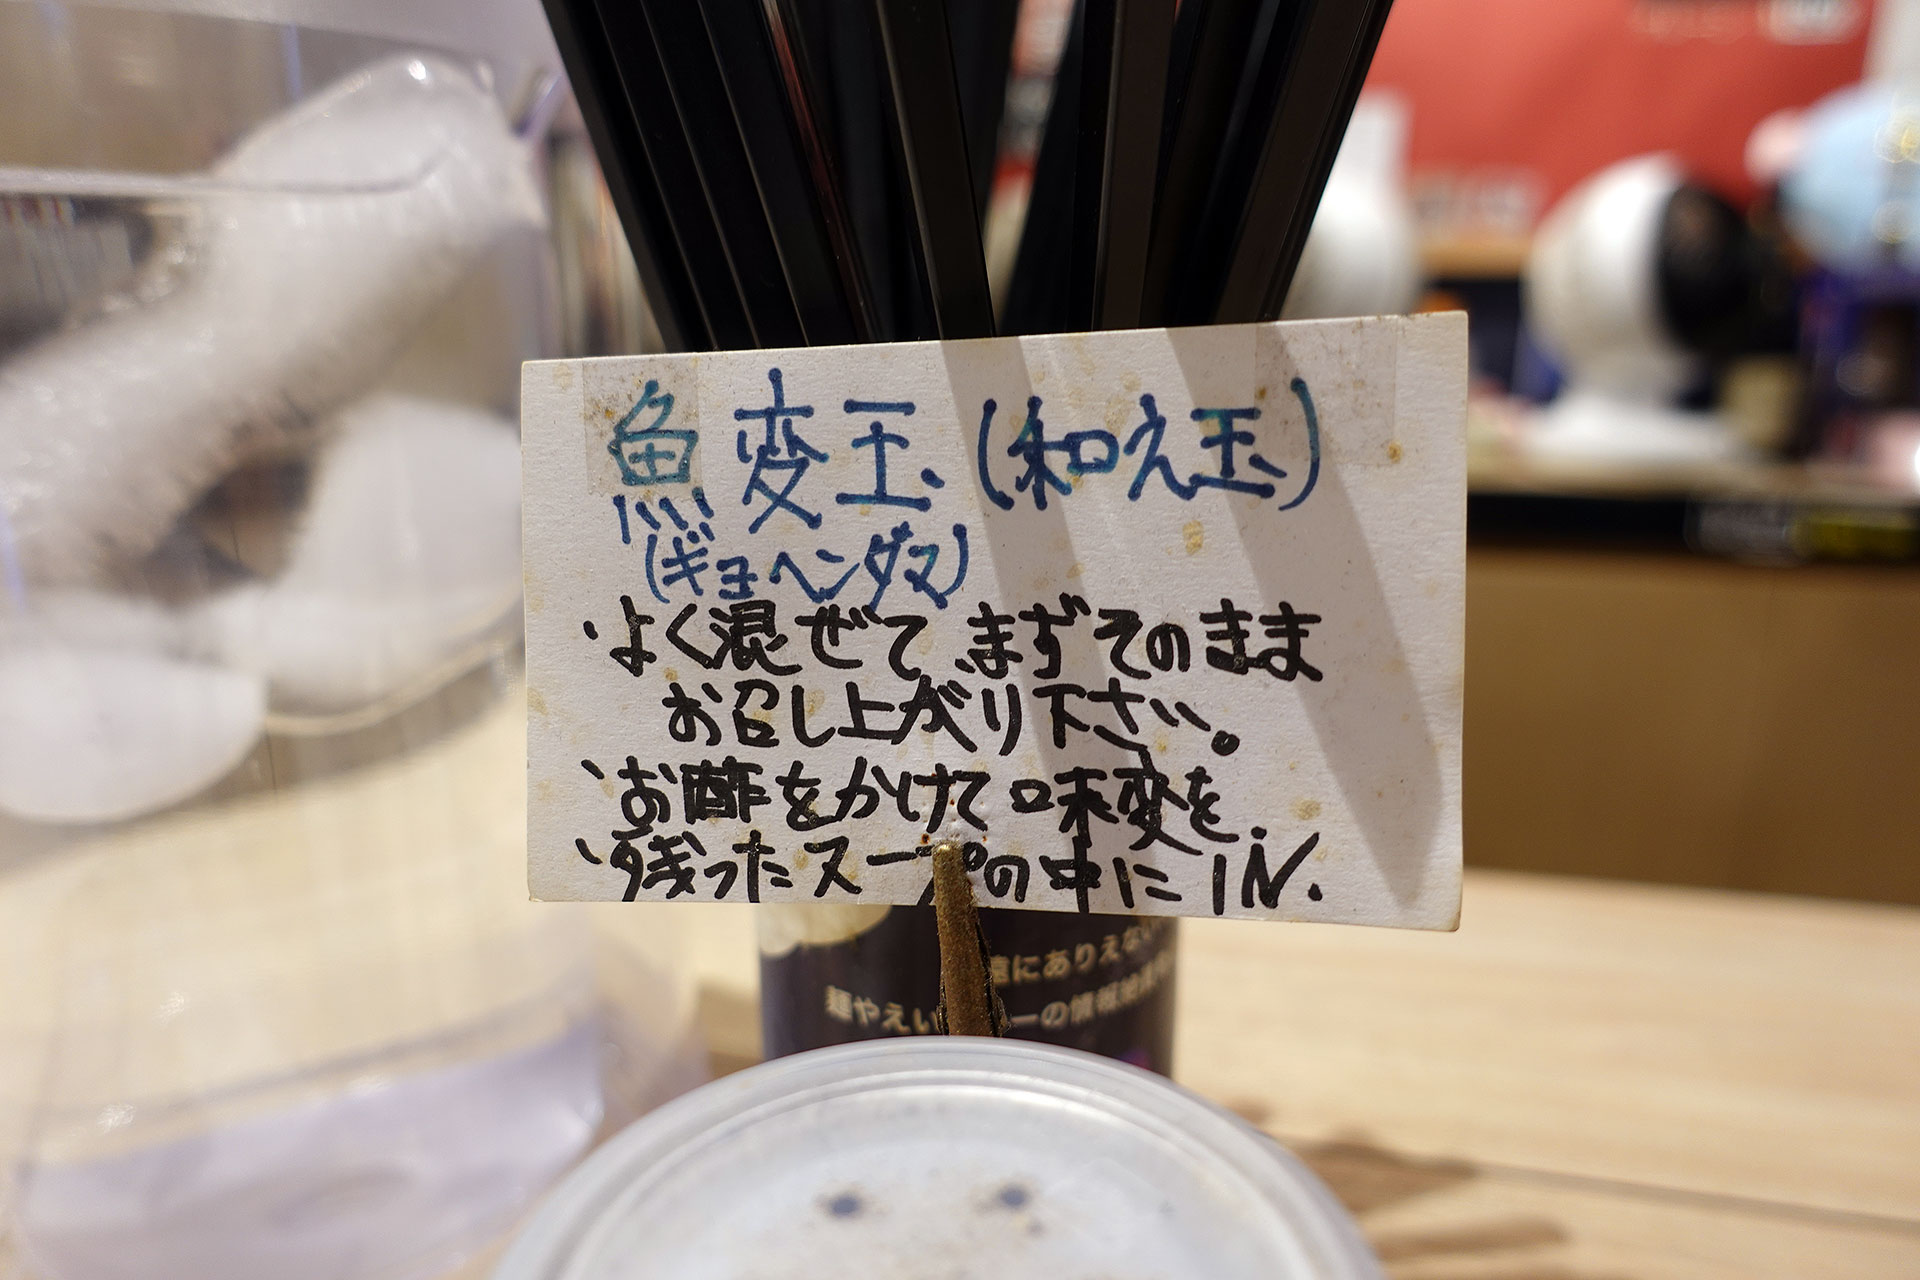 魚変玉(和え玉)
(ギョヘンダマ)
・よく混ぜて、まずそのまま
お召し上がり下さい。
・お酢をかけて味変を
・残ったスープの中にIN.
にありえない
麺やえい
ーの情報